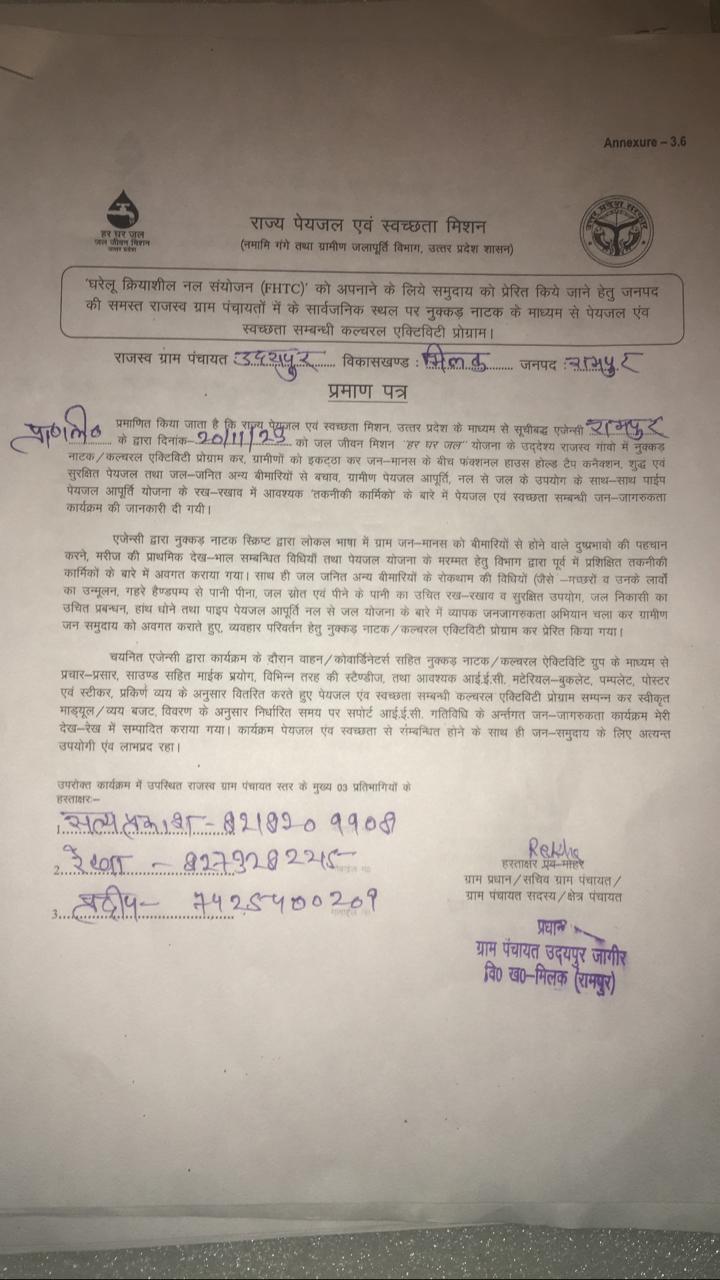 Annexure – 3.6
हर घर जल
जल जीवन मिशन
उत्तर प्रदेश
राज्य पेयजल एवं स्वच्छता मिशन
(नमामि गंगे तथा ग्रामीण जलापूर्ति विभाग, उत्तर प्रदेश शासन)
उत्तर प्रदेश सरकार
'घरेलू क्रियाशील नल संयोजन (FHTC)' को अपनाने के लिये समुदाय को प्रेरित किये जाने हेतु जनपद
की समस्त राजस्व ग्राम पंचायतों में के सार्वजनिक स्थल पर नुक्कड़ नाटक के माध्यम से पेयजल एंव
स्वच्छता सम्बन्धी कल्चरल एक्टिविटी प्रोग्राम।
राजस्व ग्राम पंचायत उदयपुर विकासखण्ड : मिलक जनपद : रामपुर
प्रमाण पत्र
प्रमाणित किया जाता है कि राज्य पेयजल एवं स्वच्छता मिशन, उत्तर प्रदेश के माध्यम से सूचीबद्ध एजेन्सी रामपुर
के द्वारा दिनांक- 20/11/23 को जल जीवन मिशन "हर घर जल" योजना के उद्देश्य राजस्व गांवो में नुक्कड़
नाटक/कल्चरल एक्टिविटी प्रोग्राम कर, ग्रामीणों को इकट्ठा कर जन-मानस के बीच फंक्शनल हाउस होल्ड टैप कनेक्शन, शुद्ध एवं
सुरक्षित पेयजल तथा जल-जनित अन्य बीमारियों से बचाव, ग्रामीण पेयजल आपूर्ति, नल से जल के उपयोग के साथ-साथ पाईप
पेयजल आपूर्ति योजना के रख-रखाव में आवश्यक 'तकनीकी कार्मिको' के बारे में पेयजल एवं स्वच्छता सम्बन्धी जन-जागरुकता
कार्यक्रम की जानकारी दी गयी।
एजेन्सी द्वारा नुक्कड़ नाटक स्क्रिप्ट द्वारा लोकल भाषा में ग्राम जन-मानस को बीमारियों से होने वाले दुष्प्रभावो की पहचान
करने, मरीज की प्राथमिक देख-भाल सम्बन्धित विधियाँ तथा पेयजल योजना के मरम्मत हेतु विभाग द्वारा पूर्व में प्रशिक्षित तकनीकी
कार्मिकों के बारे में अवगत कराया गया। साथ ही जल जनित अन्य बीमारियों के रोकथाम की विधियों (जैसे –मच्छरों व उनके लार्वो
का उन्मूलन, गहरे हैण्डपम्प से पानी पीना, जल स्रोत एवं पीने के पानी का उचित रख-रखाव व सुरक्षित उपयोग, जल निकासी का
उचित प्रबन्धन, हांथ धोने तथा पाइप पेयजल आपूर्ति नल से जल योजना के बारे में व्यापक जनजागरुकता अभियान चला कर ग्रामीण
जन समुदाय को अवगत कराते हुए, व्यवहार परिवर्तन हेतु नुक्कड़ नाटक/कल्चरल एक्टिविटी प्रोग्राम कर प्रेरित किया गया।
चयनित एजेन्सी द्वारा कार्यक्रम के दौरान वाहन/कोवार्डिनेटर्स सहित नुक्कड़ नाटक/कल्चरल ऐक्टिविटि ग्रुप के माध्यम से
प्रचार-प्रसार, साउण्ड सहित माईक प्रयोग, विभिन्न तरह की स्टैण्डीज, तथा आवश्यक आई.ई.सी. मटेरियल-बुकलेट, पम्पलेट, पोस्टर
एवं स्टीकर, प्रकिर्ण व्यय के अनुसार वितरित करते हुए पेयजल एंव स्वच्छता सम्बन्धी कल्चरल एक्टिविटी प्रोग्राम सम्पन्न कर स्वीकृत
माड्यूल/व्यय बजट, विवरण के अनुसार निर्धारित समय पर सपोर्ट आई.ई.सी. गतिविधि के अर्न्तगत जन-जागरुकता कार्यक्रम मेरी
देख-रेख में सम्पादित कराया गया। कार्यक्रम पेयजल एंव स्वच्छता से संम्बन्धित होने के साथ ही जन-समुदाय के लिए अत्यन्त
उपयोगी एंव लाभप्रद रहा।
उपरोक्त कार्यक्रम में उपस्थित राजस्व ग्राम पंचायत स्तर के मुख्य 03 प्रतिभागियों के
हस्ताक्षर:–
1. सत्यप्रकाश - 8218209908
2. रेखा - 8273282245
3. प्रदीप - 7425400209
Rekha
हस्ताक्षर एंव मोहर
ग्राम प्रधान/सचिव ग्राम पंचायत/
ग्राम पंचायत सदस्य/क्षेत्र पंचायत
प्रधान
ग्राम पंचायत उदयपुर जागीर
वि० ख०-मिलक (रामपुर)